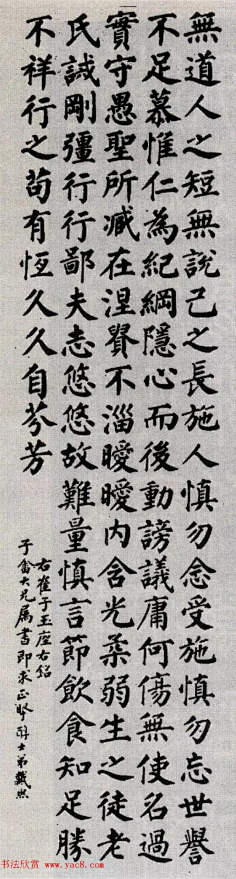 無道人之短無說己之長施人慎勿念受施慎勿忘世譽
不足慕惟仁為紀綱隱心而後動謗議庸何傷無使名過
實守愚聖所臧在涅貴不淄曖曖內含光柔弱生之徒老
氏誡剛彊行行鄙夫志悠悠故難量慎言節飲食知足勝
不祥行之苟有恆久久自芬芳
右崔子玉座右銘
子畬大兄屬書即求正
醇士弟戴熙
书法欣赏 www.yac8.com